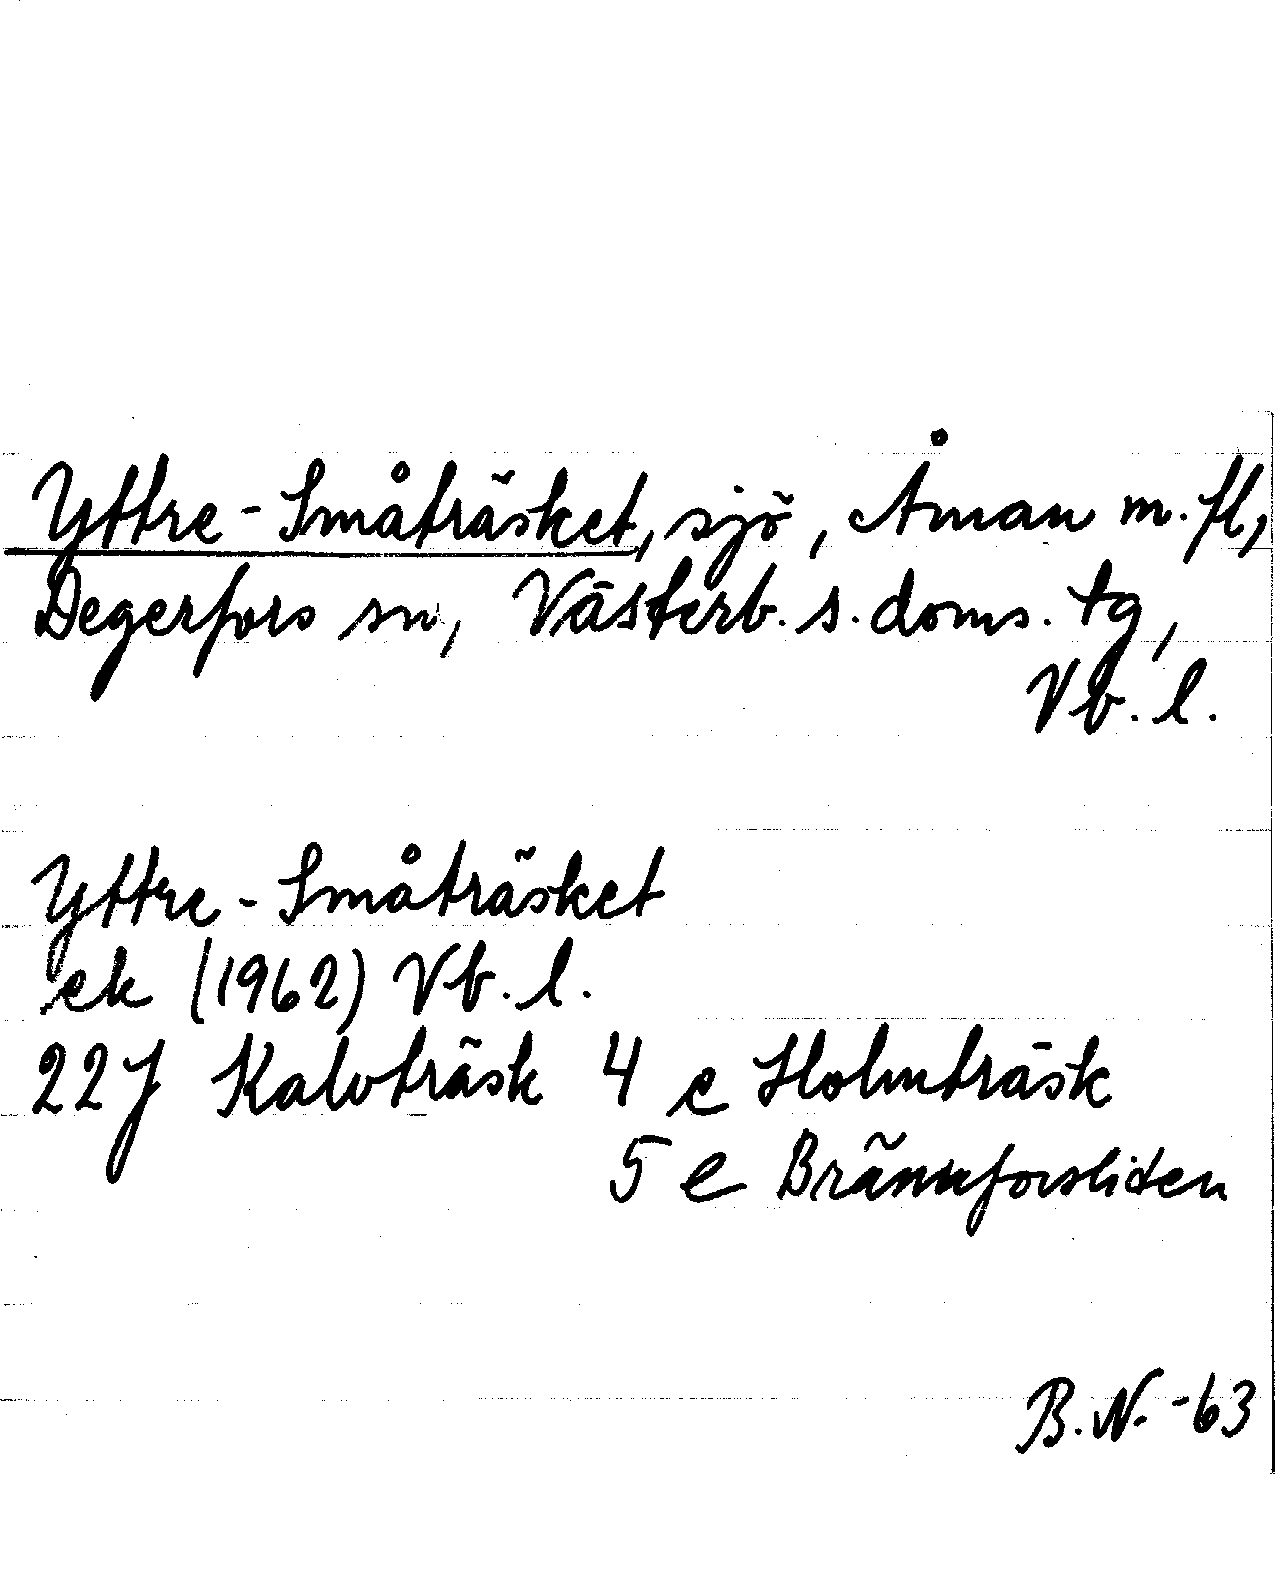 Yttre-Småträsket, sjö, Åman m.fl,
Degerfors sn, Västerb. s. doms. tg,
Vb. l.
Yttre-Småträsket
ek (1962) Vb. l.
22J Kalvträsk 4 e Holmträsk
5 e Brännforsliden
B.N. -63